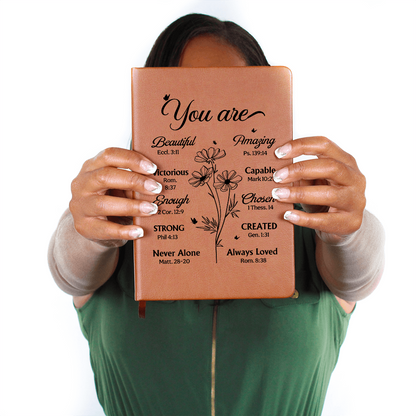 You are
Beautiful
Eccl. 3:11
Amazing
Ps. 139:14
Victorious
Rom.
8:37
Capable
Mark 10:2
Enough
2 Cor. 12:9
Chosen
1 Thess. 14
STRONG
Phil 4:13
CREATED
Gen. 1:31
Never Alone
Matt. 28-20
Always Loved
Rom. 8:38